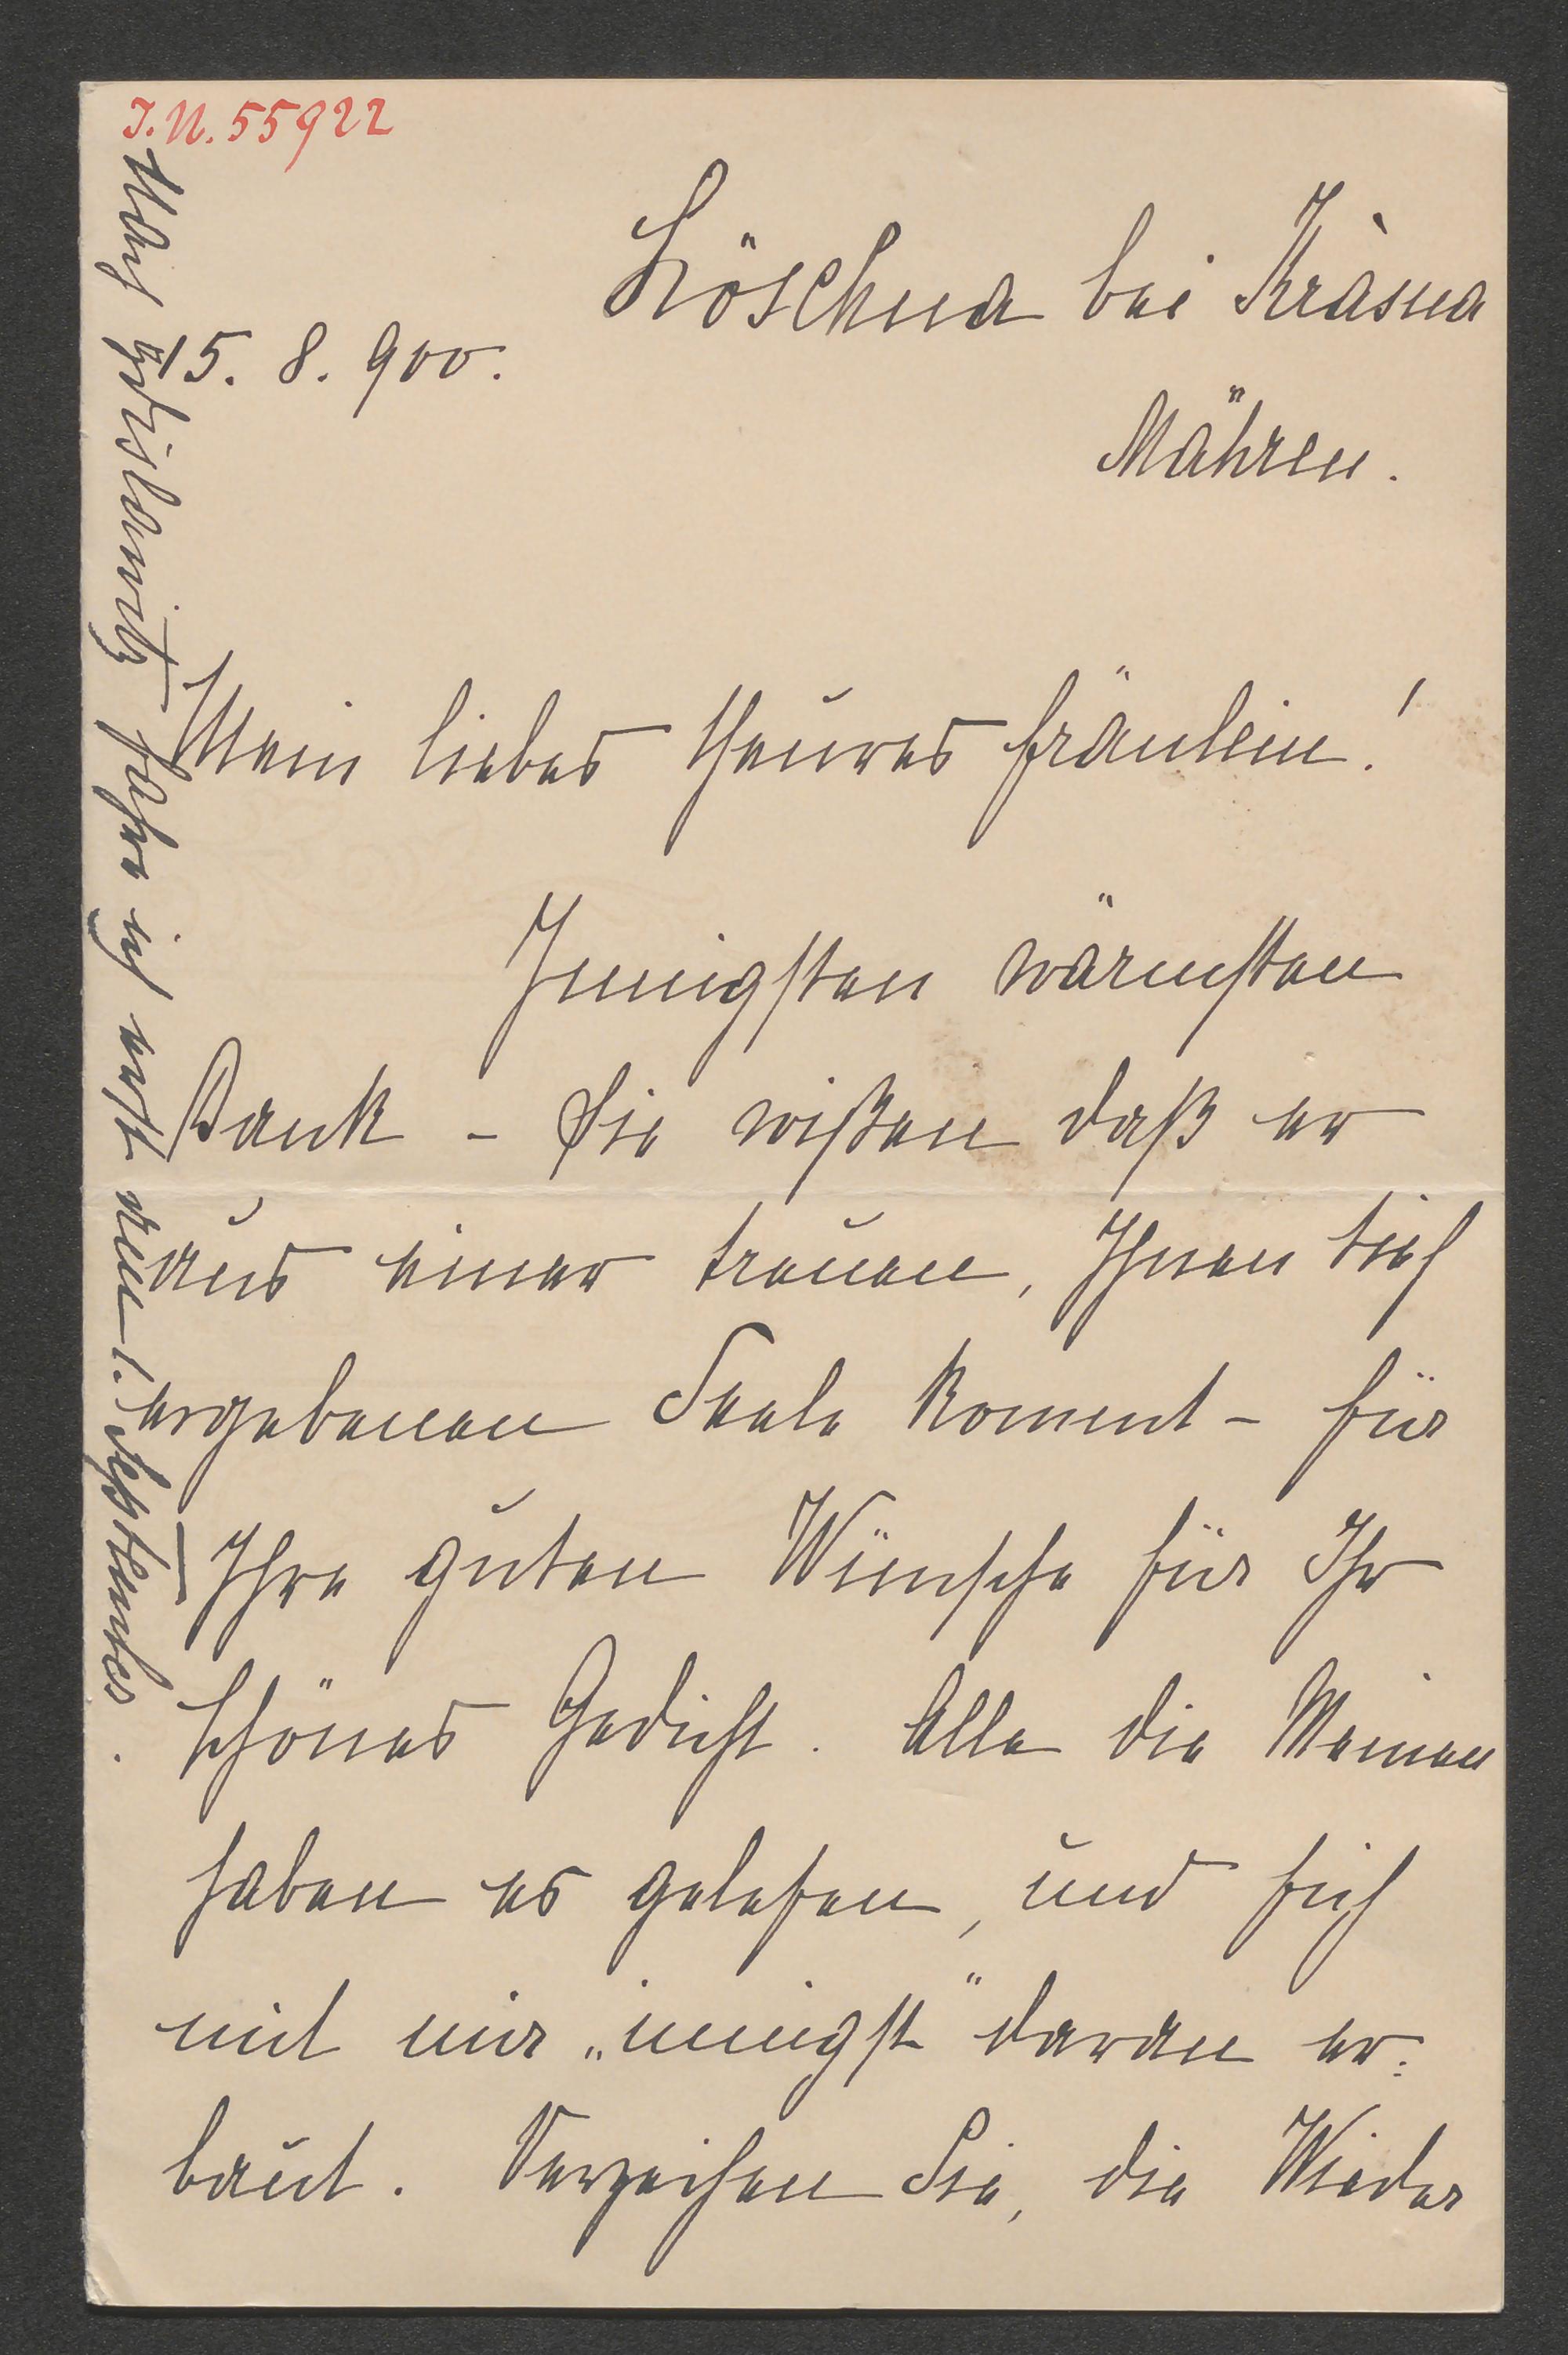 I.N. 55922
Löschna bei Kràsna
15. 8. 900.
Mähren.
Mein liebes theures Fräulein!
Innigsten wärmsten
Dank – Sie wißen daß er
aus einer treuen, Ihnen tief
ergebenen Seele kommt – für
Ihre guten Wünsche für Ihr
schönes Gedicht. Alle die Meinen
haben es gelesen, und sich
mit mir „innigst" daran er:
baut. Verzeihen Sie, die Wieder
Nach Zdislawitz fahre ich erst am 1. September.